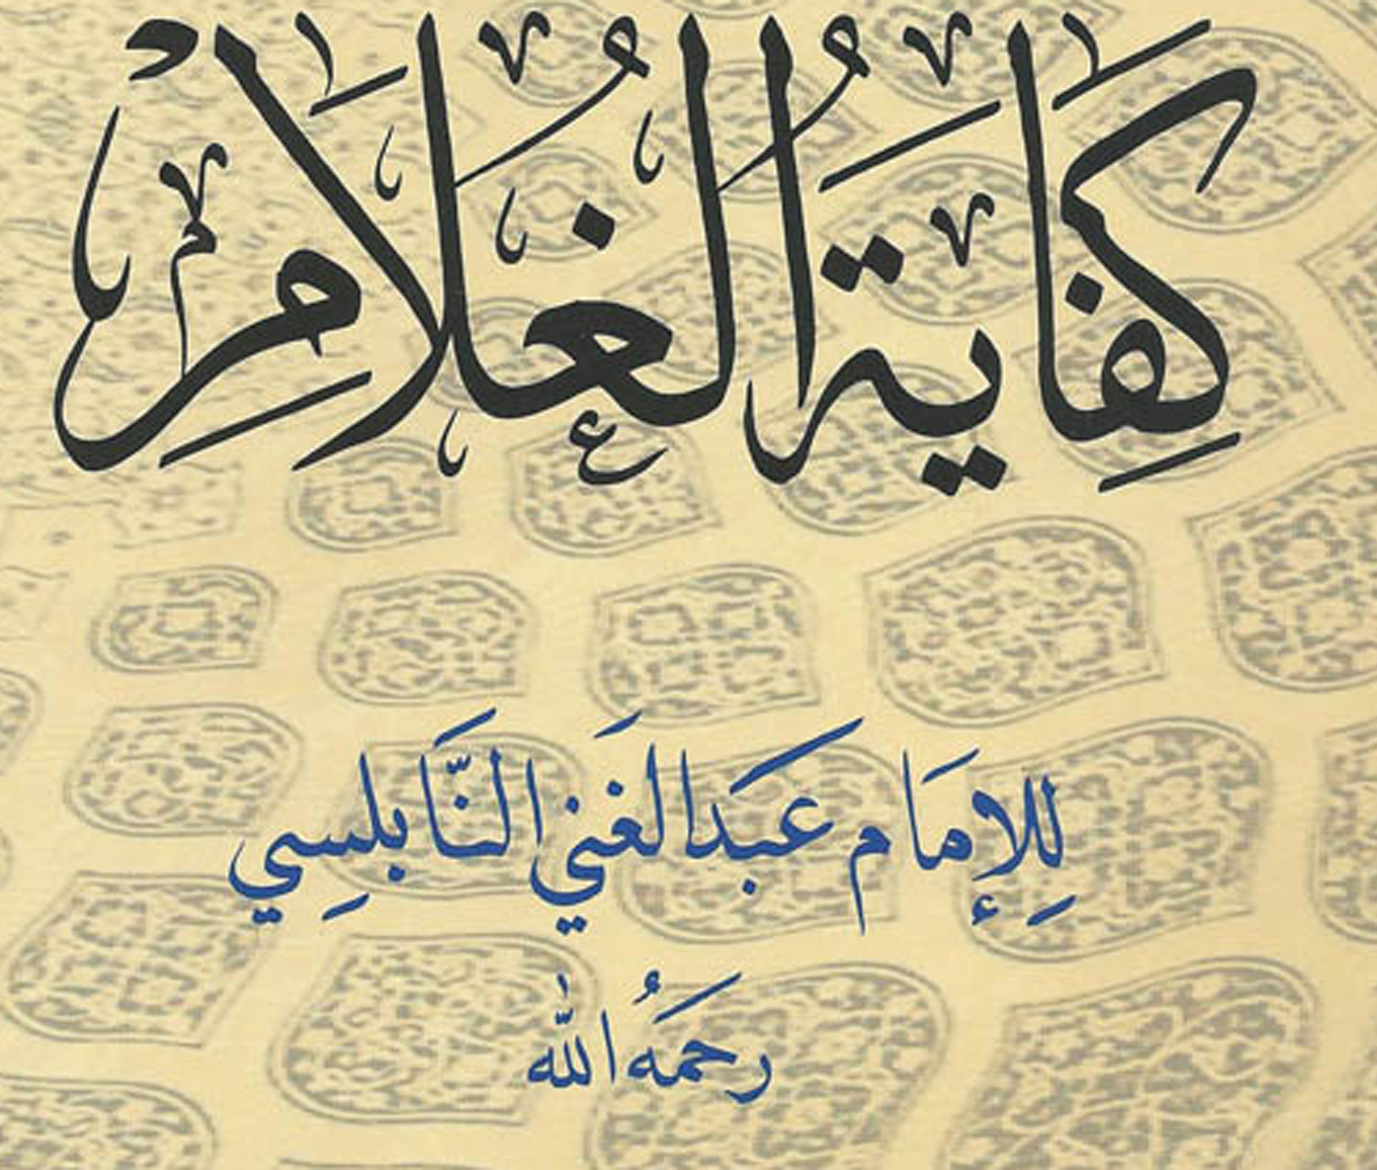 كِفَايَةُ الغُلَامِ
لِلإِمَام عَبَدالغَني النَّابلسِي
رحمَهُ اللّٰه